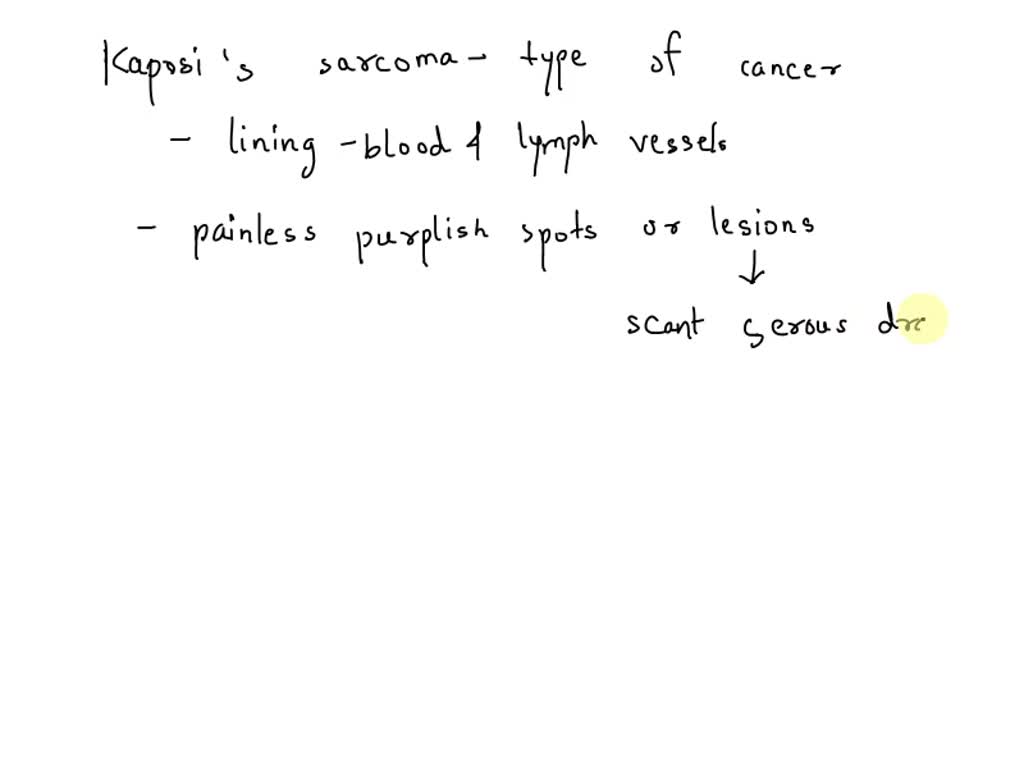 Kaposi's sarcoma - type of cancer
- lining - blood & lymph vessels
- painless purplish spots or lesions
↓
scant serous dra